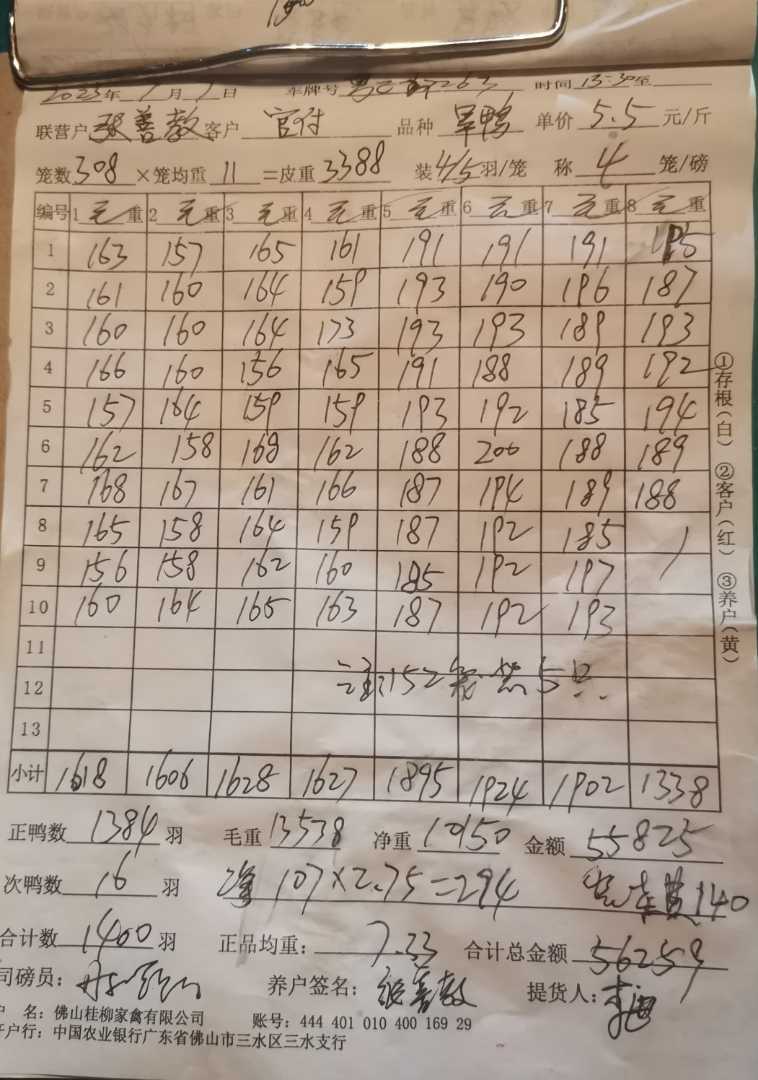 2023年1月1日 车牌号 时间13:30至
联营户张善教客户官付品种旱鸭单价5.5元/斤
笼数308×笼均重11=皮重3388 装4/5羽/笼 称4笼/磅
编号 1毛重 2毛重 3毛重 4毛重 5毛重 6毛重 7毛重 8毛重
1 163 157 165 161 191 191 191 195
2 161 160 164 159 193 190 196 187
3 160 160 164 173 193 193 189 193
4 166 160 156 165 191 188 189 192
5 157 164 159 159 193 192 185 194
6 162 158 168 162 188 200 188 189
7 168 167 161 166 187 194 189 188
8 165 158 164 159 187 192 185
9 156 158 162 160 185 192 197
10 160 164 165 163 187 192 193
11
12 注:152笼装5只
13
小计 1618 1606 1628 1627 1895 1924 1902 1338
正鸭数1384羽 毛重13538 净重10150 金额55825
次鸭数16羽 107×2.75=294 车费140
合计数1400羽 正品均重:7.33 合计总金额56259
司磅员: 养户签名:张善教 提货人:
户 名:佛山桂柳家禽有限公司 账号:444 401 010 400 169 29
开户行:中国农业银行广东省佛山市三水区三水支行
①存根(白) ②客户(红) ③养户(黄)